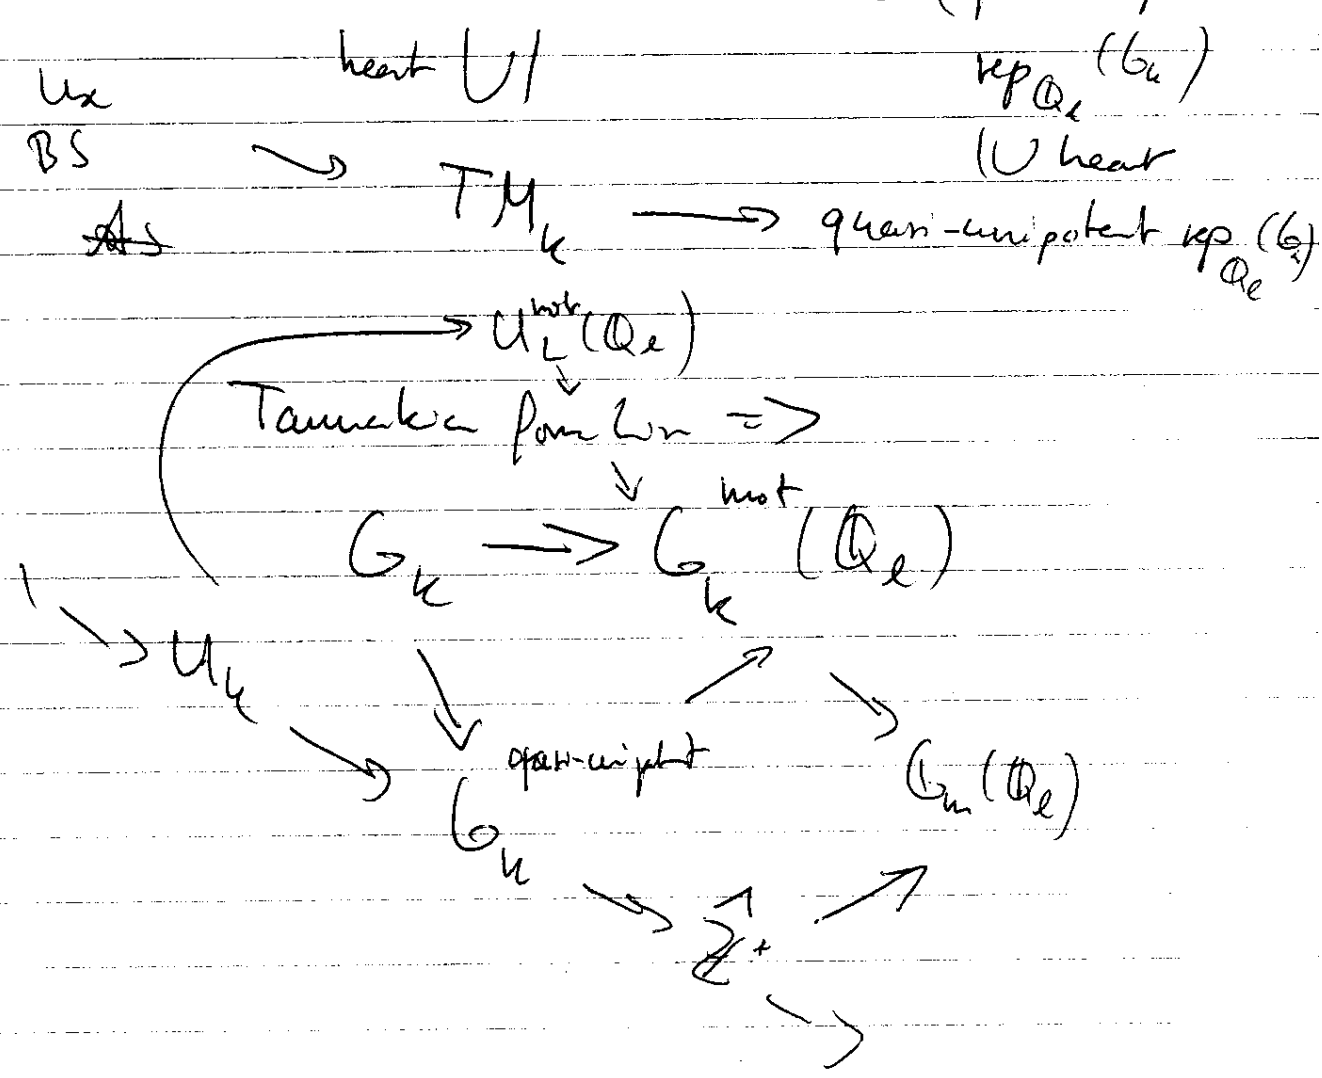 heart U| rep_{Q_ℓ} (G_k)
U_k
BS |U heart
→ TM_k → quasi-unipotent rep_{Q_ℓ} (G_k)
→ U_L^{mot} (Q_ℓ)
↓
Tannakian formalism =>
↓
G_k → G_k^{mot} (Q_ℓ)
1 → U_k
↓ ↗ ↘
→ G_k^{quasi-unipotent} G_m (Q_ℓ)
→ \hat{Z}^* ↗
→